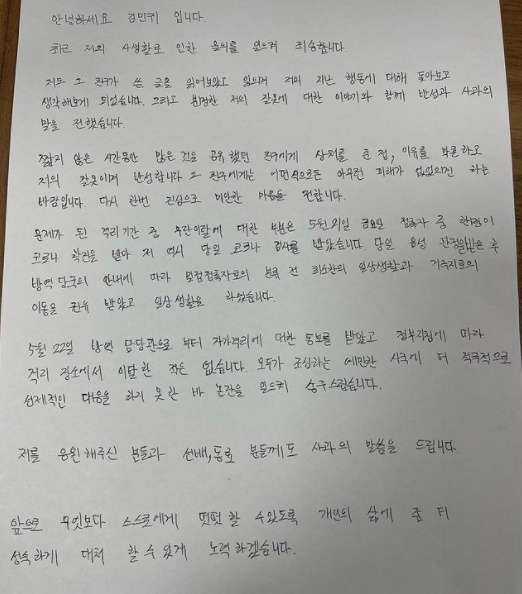 안녕하세요 김민귀 입니다.
최근 저의 사생활로 인한 논의를 일으켜 죄송합니다.
저도 그 친구가 쓴 글을 읽어보았고 있으며 저의 지난 행동에 대해 돌아보고
생각해보게 되었습니다. 그리고 분명한 저의 잘못에 대한 이야기와 함께 반성과 사과의
말을 전했습니다.
짧지 않은 시간동안 많은 것을 공유했던 친구에게 상처를 준 점, 이유를 막론하고
저의 잘못이며 반성합니다 그 친구에게는 어떤식으로든 아무런 피해가 없었으면 하는
바람입니다. 다시 한번 진심으로 미안한 마음을 전합니다.
문제가 된 격리기간 중 무단이탈에 대한 부분은 5월 21일 금요일 접촉자 중 한명이
코로나 확진을 받아 저 역시 당일 코로나 검사를 받았습니다. 당일 음성 판정받은 후
방역 당국의 안내에 따라 밀접접촉자로의 분류 전 최소한의 일상생활과 거주지로의
이동을 권유 받았고 일상생활을 하였습니다.
5월 22일 방역 담당관으로 부터 자가격리에 대한 통보를 받았고 정부지침에 따라
격리 장소에서 이탈한 적은 없습니다. 모두가 조심하는 예민한 시국에 더 적극적으로
선제적인 대응을 하지 못한 바 논란을 일으켜 송구스럽습니다.
저를 응원해주신 분들과 선배,동료 분들께도 사과의 말씀을 드립니다.
앞으로 무엇보다 스스로에게 떳떳할 수있도록 개인의 삶에 좀 더
성숙하게 대처 할 수 있게 노력하겠습니다.